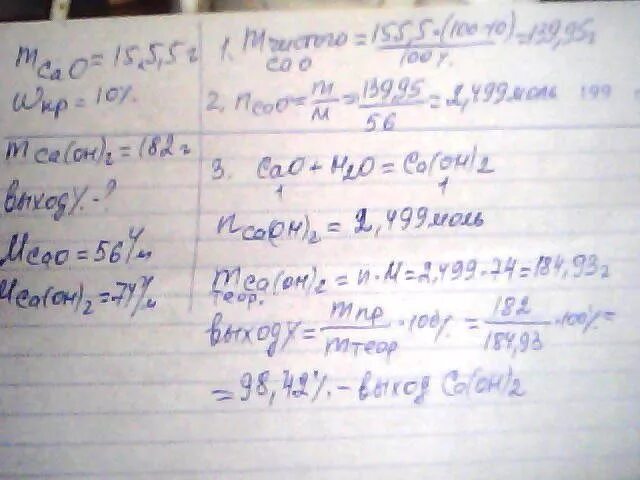 m CaO = 155,5 г
Wпр = 10%
m Ca(OH)2 = 182 г
выход % - ?
M CaO = 56 г/м
M Ca(OH)2 = 74 г/м
1. m чистого CaO = 155,5·(100-10)/100% = 139,95 г
2. n CaO = m/M = 139,95/56 = 2,499 моль 199
3. CaO + H2O = Ca(OH)2
1 1
n Ca(OH)2 = 2,499 моль
m Ca(OH)2 теор. = n·M = 2,499·74 = 184,93 г
выход % = mпр/mтеор·100% = 182/184,93·100% =
= 98,42% - выход Ca(OH)2